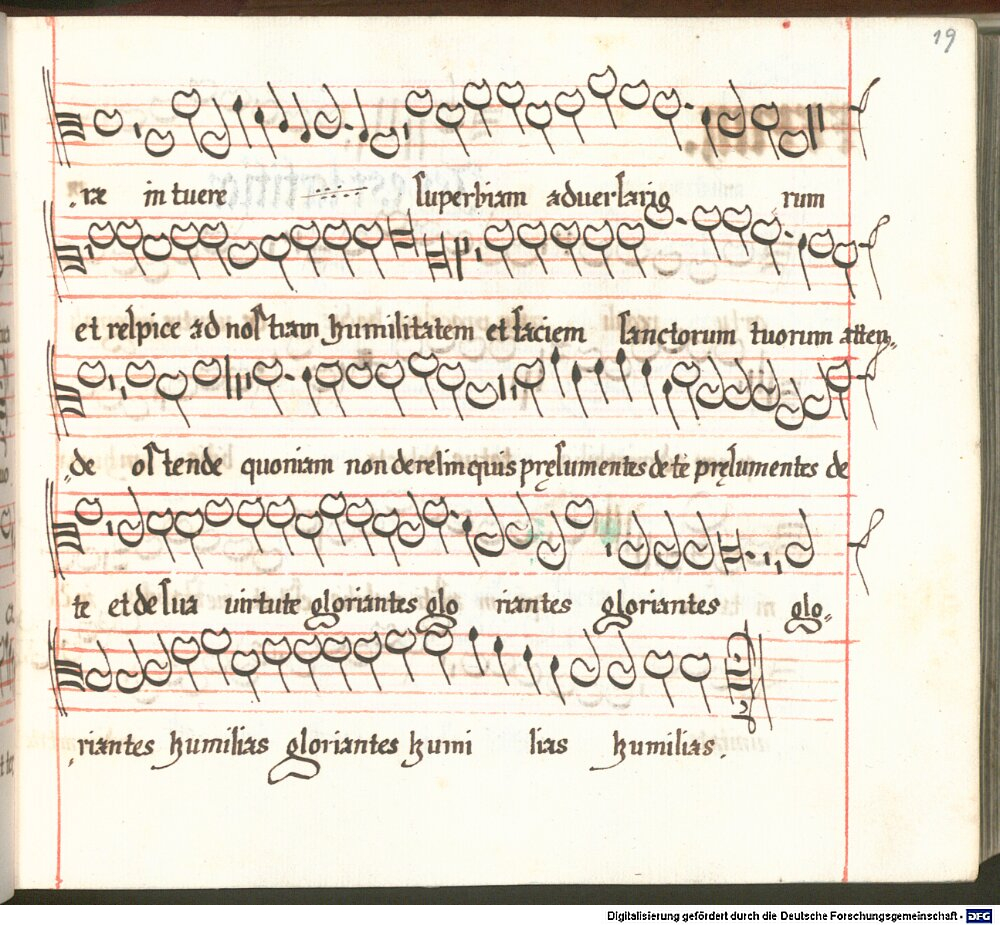 19
, ræ intuere superbiam aduersario rum
et respice ad nostram humilitatem et faciem sanctorum tuorum atten„
„de ostende quoniam non derelinquis pręsumentes de te pręsumentes de
te et de sua uirtute gloriantes glo riantes gloriantes glo„
, riantes humilias gloriantes humi lias humilias.
Digitalisierung gefördert durch die Deutsche Forschungsgemeinschaft - DFG